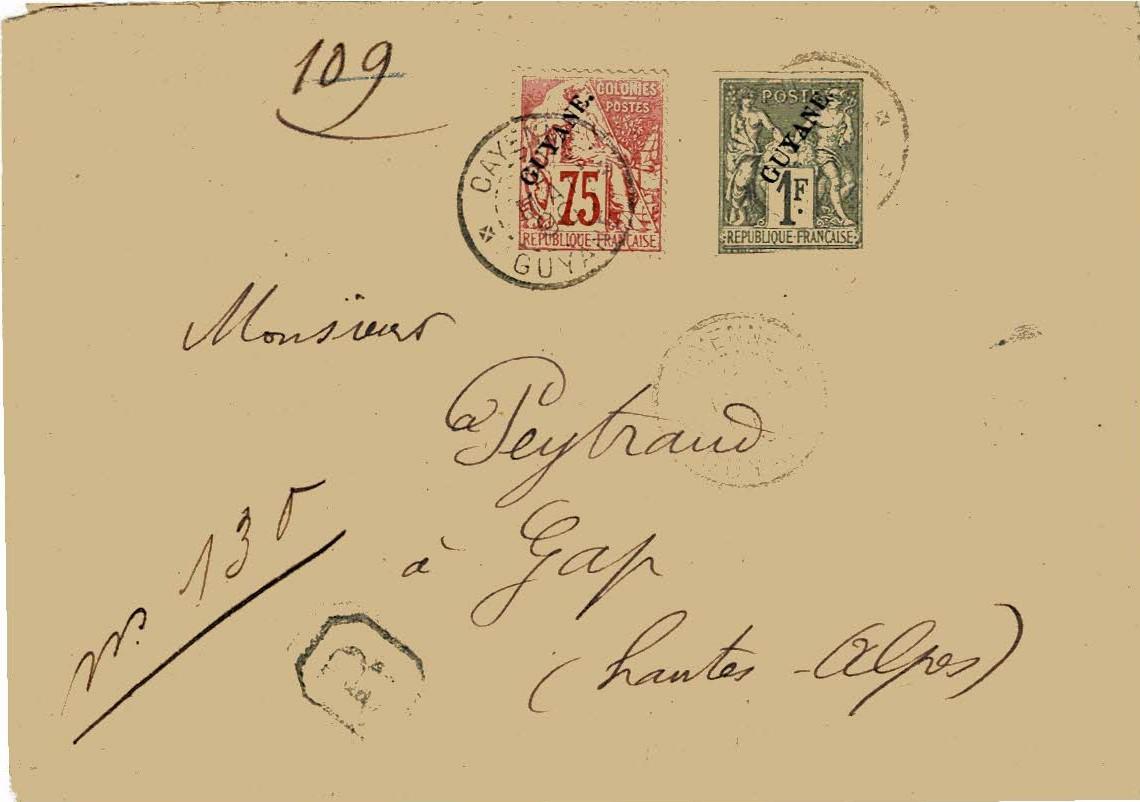 109
COLONIES
POSTES
GUYANE.
75
REPUBLIQUE-FRANÇAISE
POSTE
GUYANE.
1F.
REPUBLIQUE-FRANÇAISE
CAYENNE
GUYANE
Monsieur
Peytraud
à Gap
(hautes-Alpes)
N. 135
R